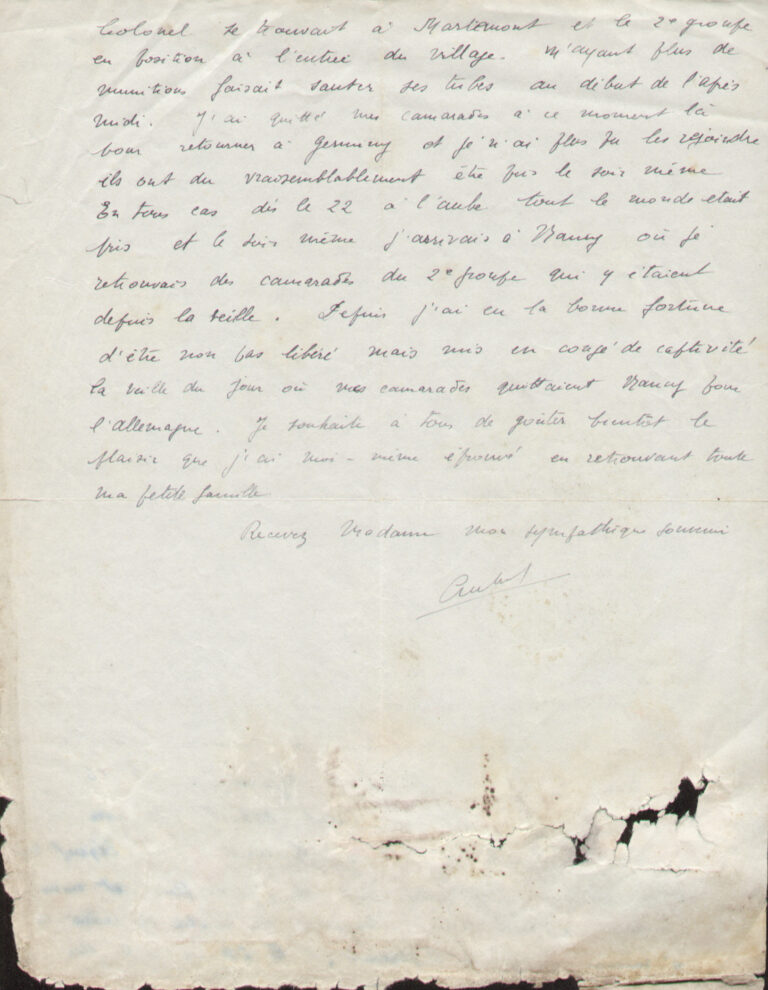 Colonel se trouvait à Martemont et le 2e groupe
en position à l'entrée du village. N'ayant plus de
munitions faisait sauter ses tubes au début de l'après
midi. J'ai quitté mes camarades à ce moment là
pour retourner à Germiny et je n'ai plus pu les rejoindre
ils ont du vraisemblablement être pris le soir même
En tous cas dès le 22 à l'aube tout le monde était
pris et le soir même j'arrivais à Nancy où je
retrouvais des camarades du 2e groupe qui y étaient
depuis la veille. Depuis j'ai eu la bonne fortune
d'être non pas libéré mais mis en congé de captivité
la veille du jour où mes camarades quittaient Nancy pour
l'allemagne. Je souhaite à tous de goûter bientot le
plaisir que j'ai moi-même éprouvé en retrouvant toute
ma petite famille
Recevez Madame mon sympathique souvenir